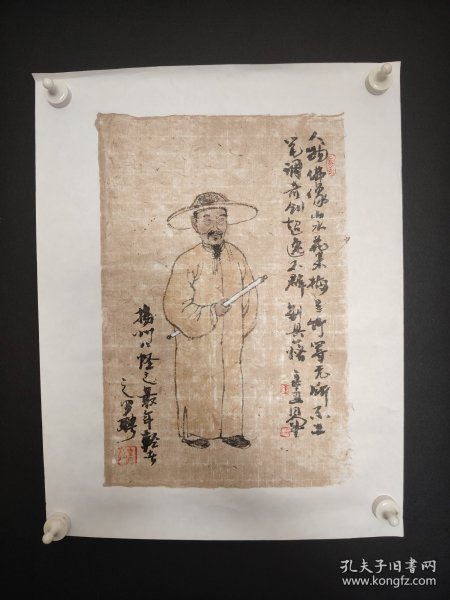 人物佛像山水花果梅兰竹等无所不工
笔调奇创超逸不群别具一格辛丑
扬州八怪之最年轻者
之罗聘
孔夫子旧书网
www.kongfz.com